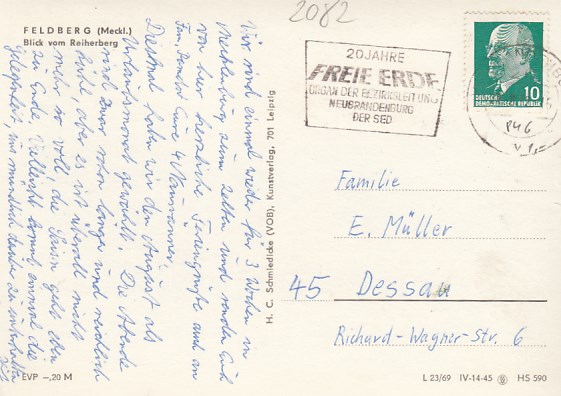 2082
FELDBERG (Meckl.)
Blick vom Reiherberg
Wir sind einmal wieder für 3 Wochen in
Mecklenburg zum Zelten und senden Euch
von hier herzliche Feriengrüße auch an
Fam. Eure 4 Neumänner.
Diesmal haben wir den August als
Urlaubsmonat gewählt. Die Abende
sind zwar schon lange und reichlich
kühl aber es ist überall nicht
mehr so voll, die Saison geht eben
zu Ende. Vielleicht kommt einmal die
Gelegenheit, sich mündlich darüber zu unterhalten
EVP –,20 M
H. C. Schmiedicke (VOB), Kunstverlag, 701 Leipzig
20 JAHRE
FREIE ERDE
ORGAN DER BEZIRKSLEITUNG
NEUBRANDENBURG
DER SED
10
DEUTSCHE
DEMOKRATISCHE REPUBLIK
P46
Familie
E. Müller
45 Dessau
Richard-Wagner-Str. 6
L 23/69 IV-14-45 HS 590